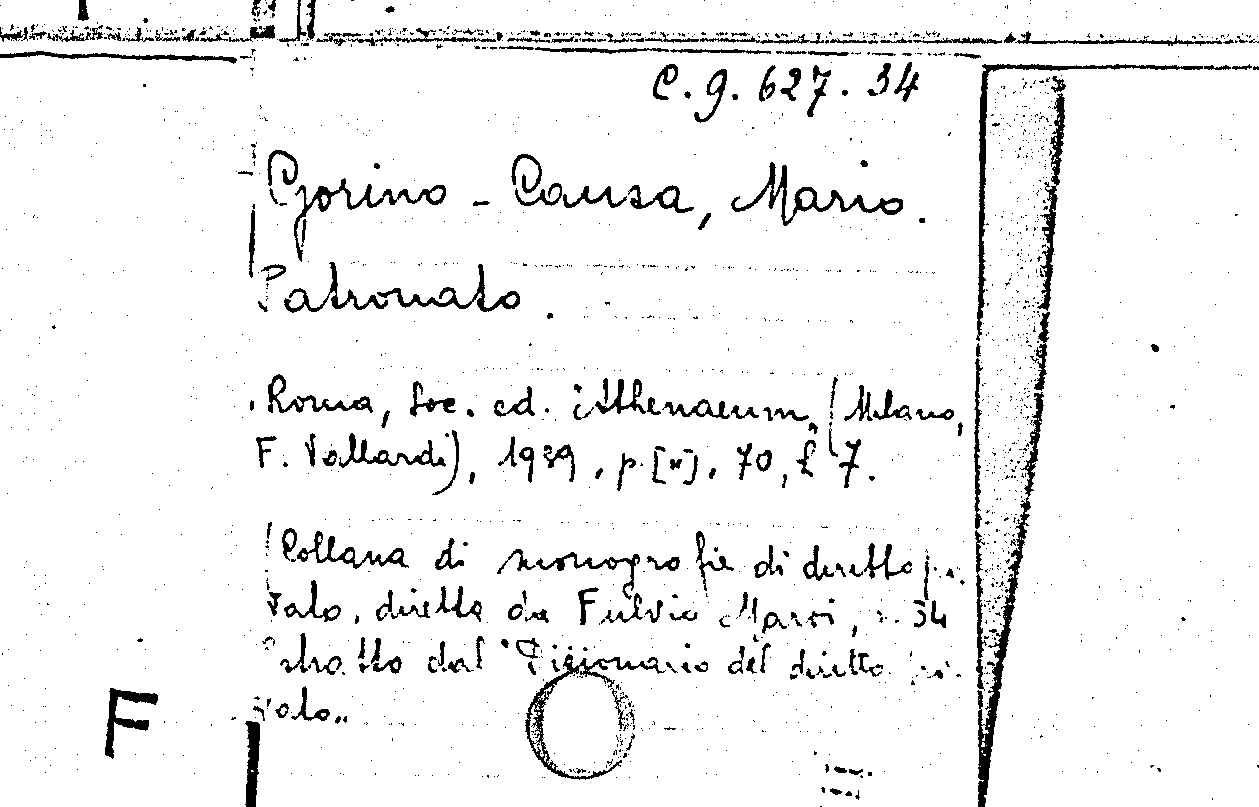 C.g. 627. 34
Gorino - Causa, Mario.
Patronato.
Roma, Soc. ed. Athenaeum, (Milano,
F. Vallardi), 1939, p. [x], 70, £ 7.
(Collana di monografie di diritto pri-
vato, diretta da Fulvio Maroi, n. 34
Estratto dal "Dizionario del diritto pri-
vato„
F